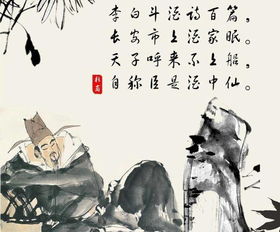 李白斗酒诗百篇，
长安市上酒家眠。
天子呼来不上船，
自称臣是酒中仙。
杜甫